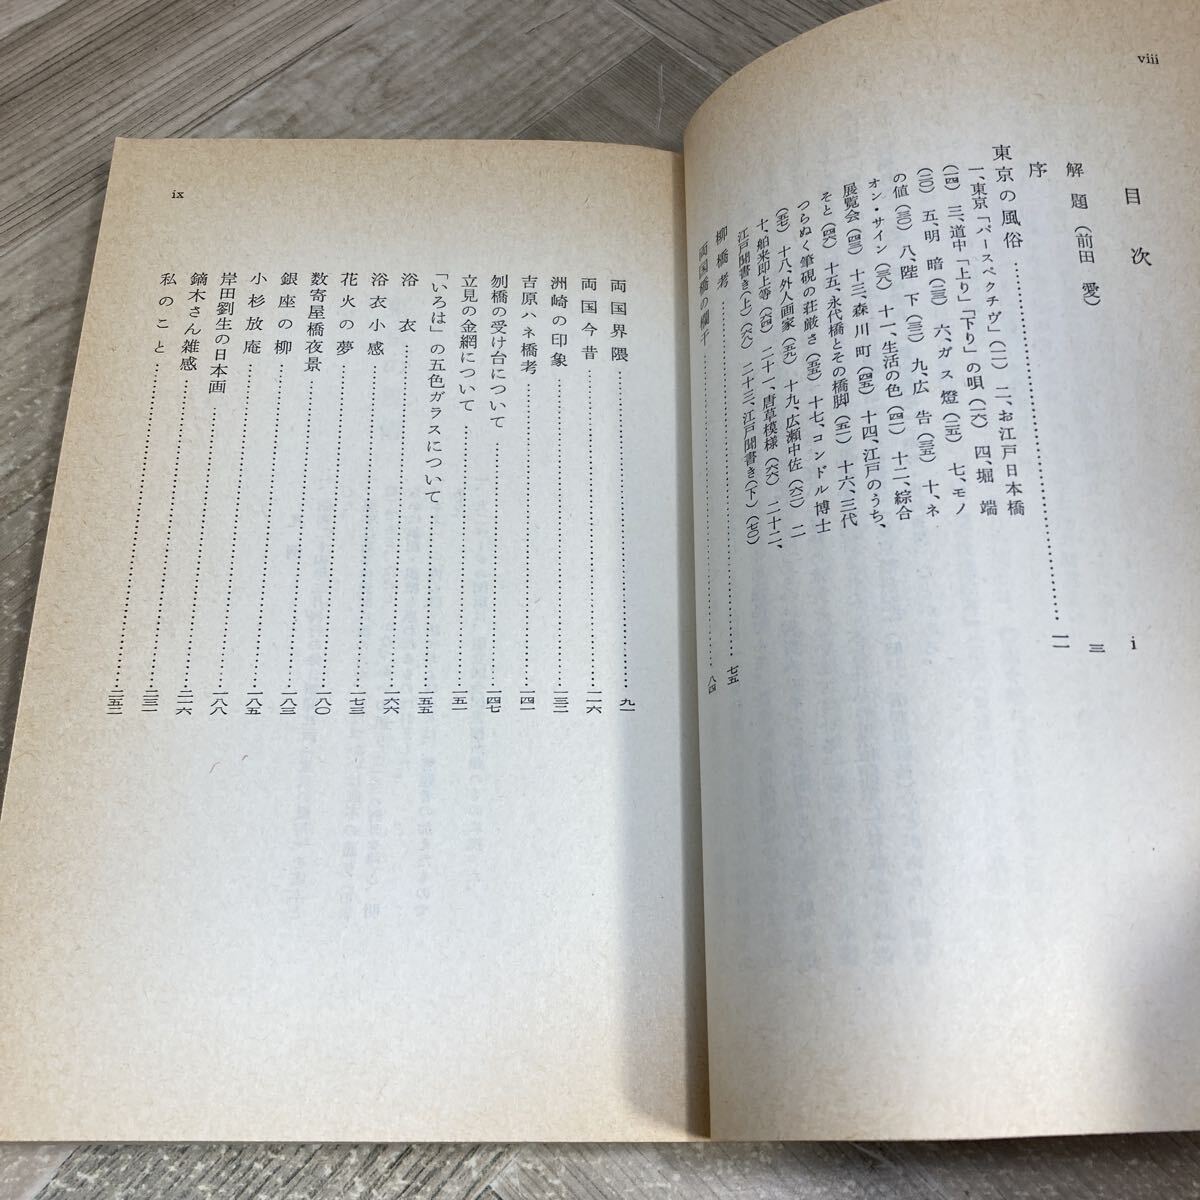 viii
目次
解題（前田 愛） i
序 三
東京の風俗 一一
一、東京「パースペクチヴ」（一一） 二、お江戸日本橋
（一四） 三、道中「上り」「下り」の唄（一六） 四、堀端
（二〇） 五、明暗（二三） 六、ガス燈（二五） 七、モノ
の値（三〇） 八、陛下（三三） 九、広告（三五） 十、ネ
オン・サイン（三八） 十一、生活の色（四一） 十二、綜合
展覧会（四三） 十三、森川町（四五） 十四、江戸のうち、
そと（四六） 十五、永代橋とその橋脚（五一） 十六、三代
つらぬく筆硯の荘厳さ（五五） 十七、コンドル博士
（五七） 十八、外人画家（五九） 十九、広瀬中佐（六二） 二
十、舶来即上等（六四） 二十一、唐草模様（六六） 二十二、
江戸聞書き（上）（六八） 二十三、江戸聞書き（下）（七〇）
柳橋考 七五
両国橋の欄干 八四
両国界隈 九一
両国今昔 一一六
洲崎の印象 一三二
吉原ハネ橋考 一四一
刎橋の受け台について 一四七
立見の金網について 一五一
「いろは」の五色ガラスについて 一五五
浴衣 一六六
浴衣小感 一六六
花火の夢 一七三
数寄屋橋夜景 一八〇
銀座の柳 一八三
小杉放庵 一八五
岸田劉生の日本画 一八八
鏑木さん雑感 二一六
私のこと 二三一
二五二
ix